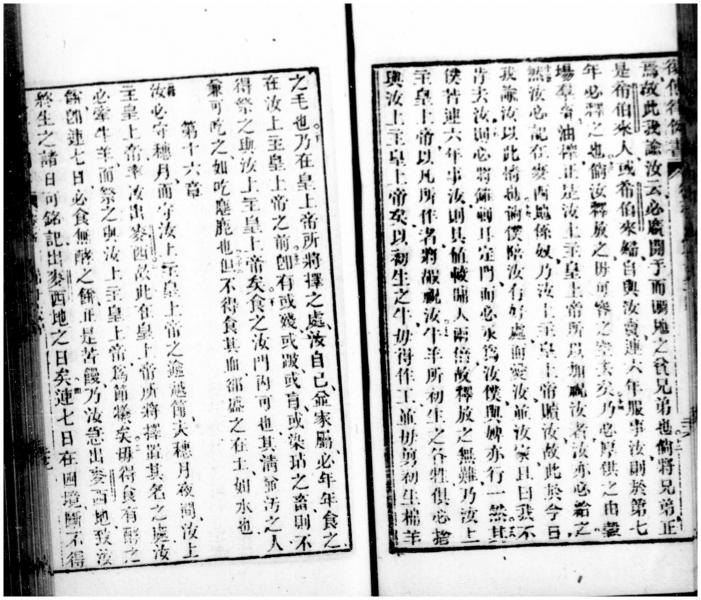 復傳律例書
焉故此我諭汝云必廣開手而顧地之貧兄弟也倘將兄弟正
是希伯來人或希伯來婦自與汝賣連六年服事汝則於第七
年必釋之也倘汝釋放之毋可容之空去矣乃必厚供之由羣
場羣者油榨正是汝上主皇上帝所以加祝汝者汝亦必給之
然汝必記在麥西地係奴乃汝上主皇上帝贖汝故此於今日
我諭汝以此情也倘僕陪汝有好處而愛汝並汝家且曰我不
肯去汝則必將錐刺耳定門而必永爲汝僕與婢亦行一然其
僕苦連六年事汝則其值較傭人兩倍故釋放之無難乃汝上
主皇上帝以凡所作者將福祝汝牛羊所初生之各牡俱必捨
與汝上主皇上帝矣以初生之牛毋得作工並毋剪初生棉羊
之毛也乃在皇上帝所將擇之處汝自己並家屬必年年食之
在汝上主皇上帝之前卽有或殘或跛或盲或染玷之畜則不
得祭之與汝上主皇上帝矣食之汝門內可也其清並汚之人
兼可吃之如吃麈鹿也但不得食其血須盛之在土如水也
第十六章
汝必守穗月而守汝上主皇上帝之逾越節夫穗月夜間汝上
主皇上帝率汝出麥西故此在皇上帝所將擇置其名之處汝
必宰牛羊而祭之與汝上主皇上帝爲節犧矣毋得食有酵之
餅卽連七日必食無酵之餅正是苦饅乃汝急出麥西地致汝
終生之諸日可銘記出麥西地之日矣連七日在四境斷不得